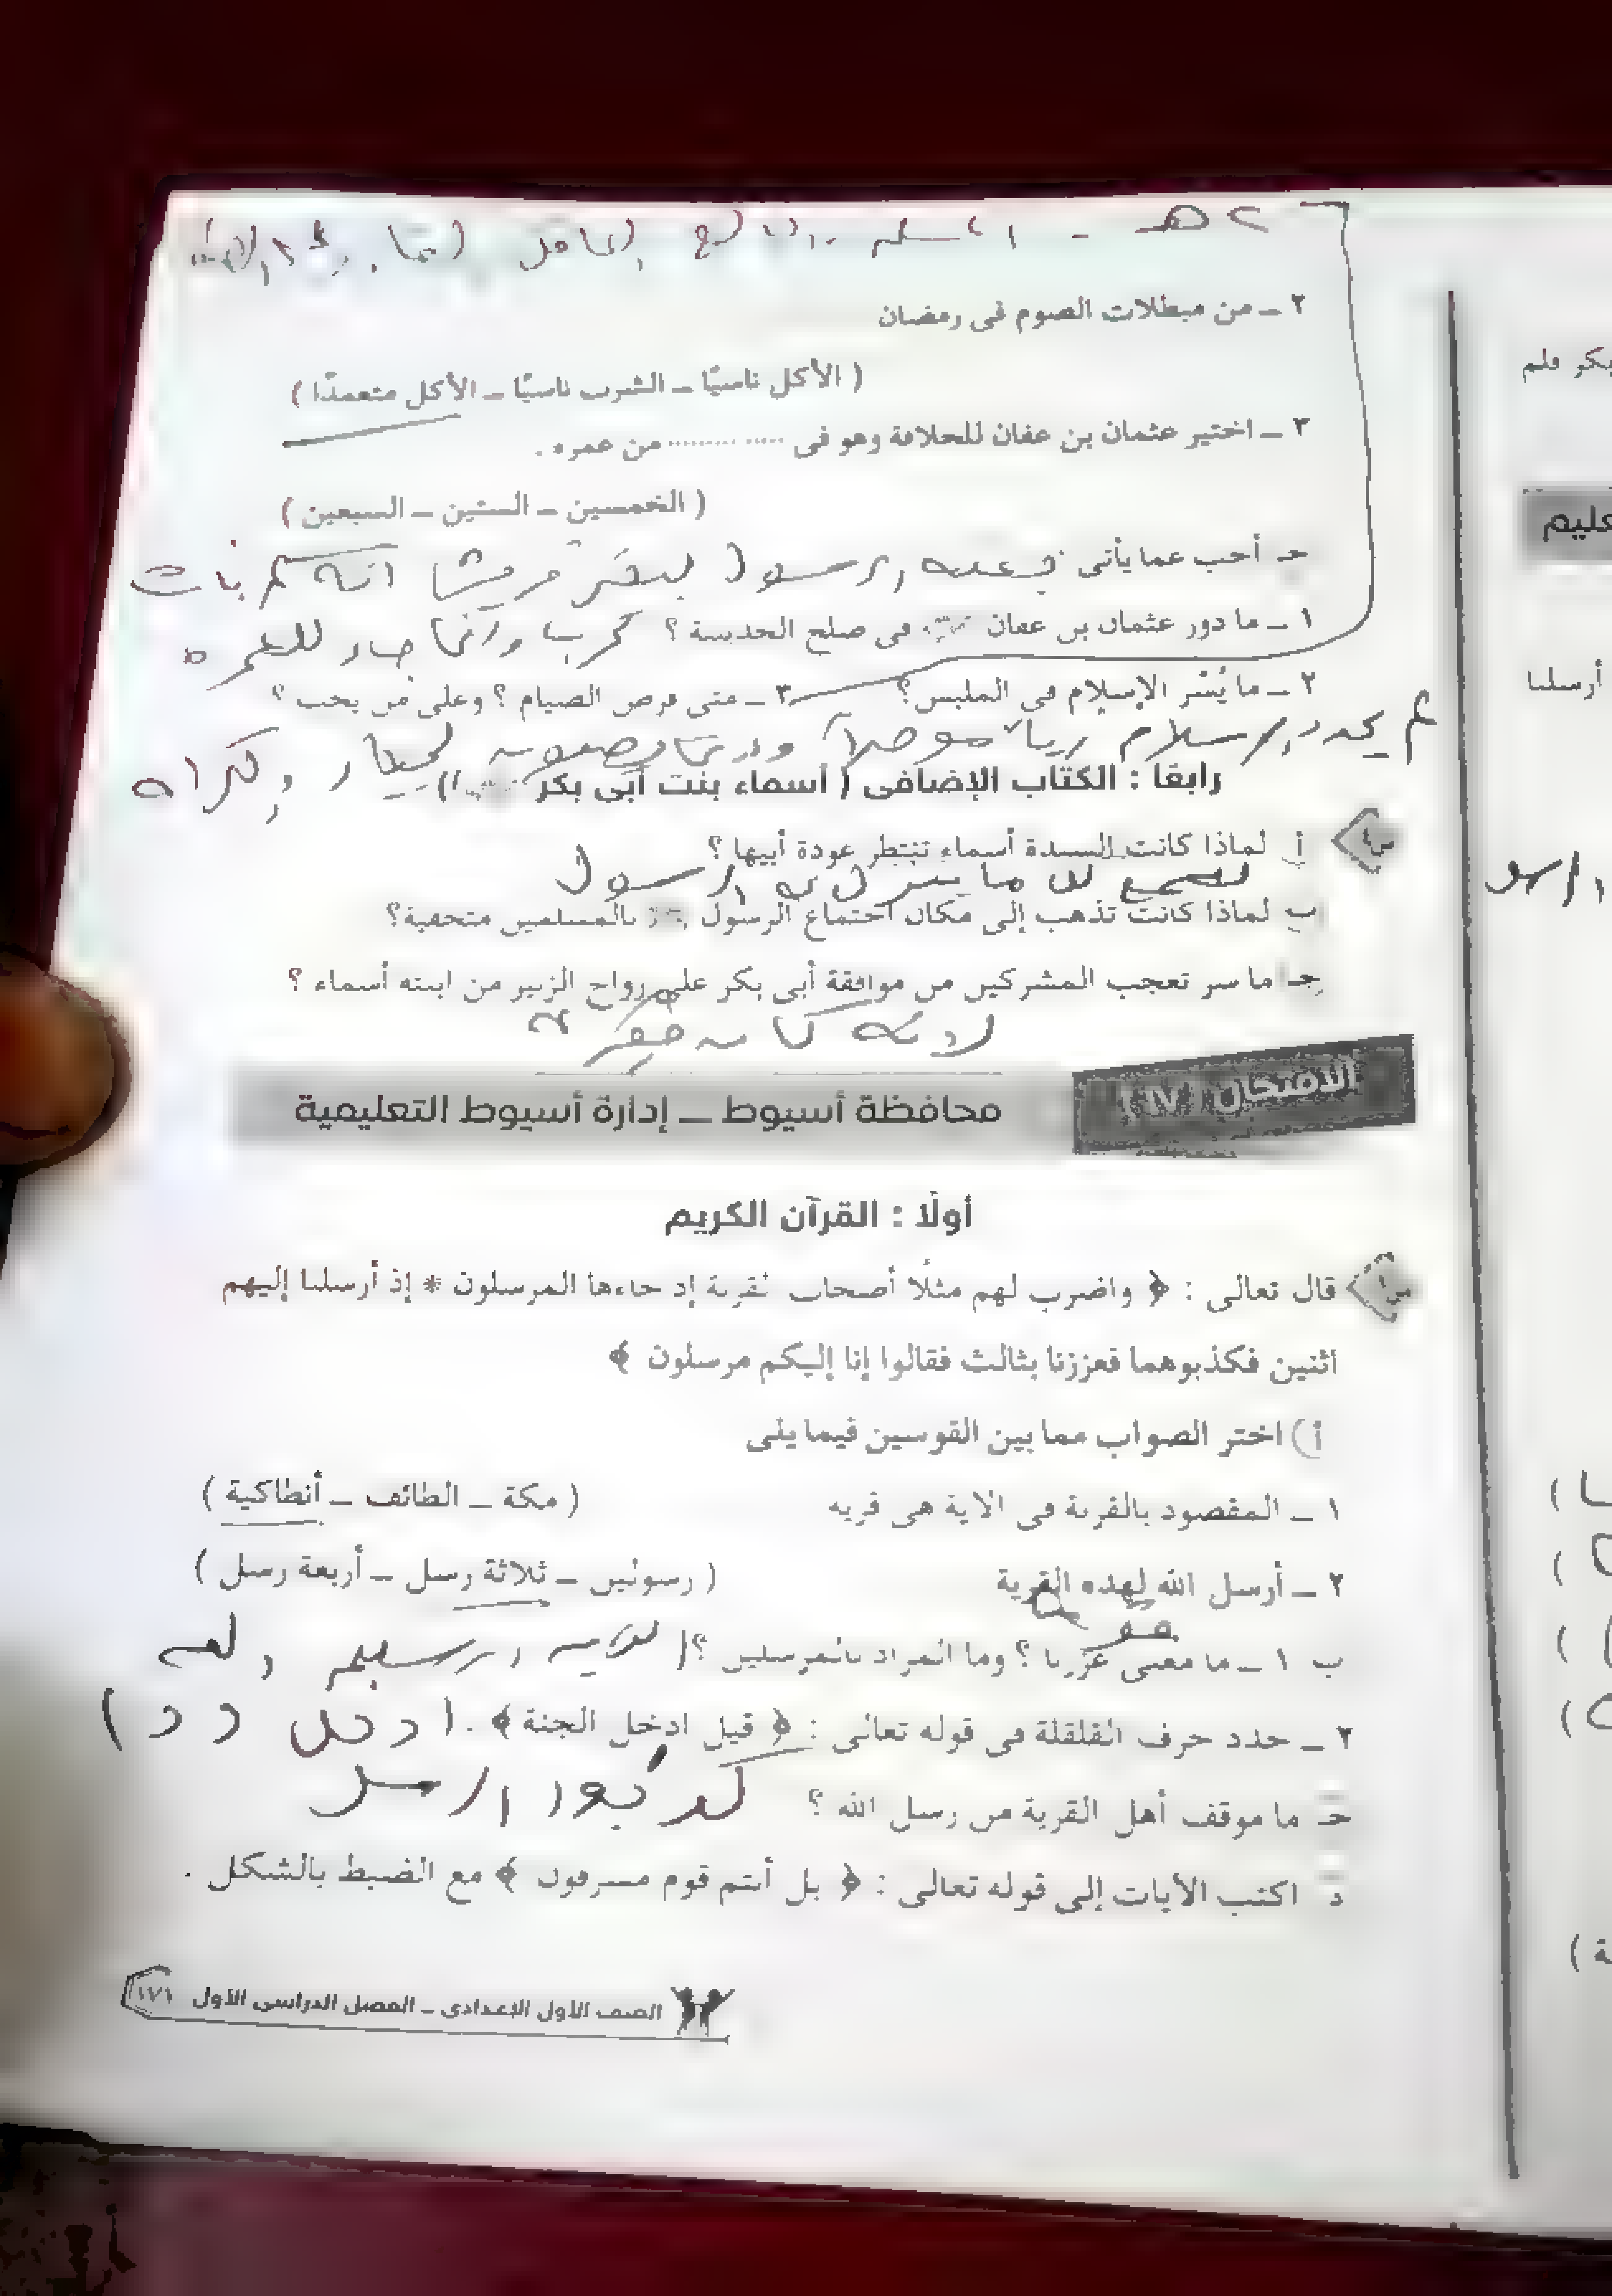 ٢هـ - المسلم البالغ العاقل
٢ ـ من مبطلات الصوم فى رمضان
( الأكل ناسيًا ـ الشرب ناسيًا ـ الأكل متعمدًا )
٣ ـ اختير عثمان بن عفان للخلافة وهو فى ............ من عمره .
( الخمسين ـ الستين ـ السبعين )
جـ أجب عما يأتى
بعثه الرسول ليخبر قريشا انه لم يأت
١ ـ ما دور عثمان بن عفان فى صلح الحديبية ؟
لحرب وانما جاء للعمرة
٢ ـ ما يُسْر الإسلام فى الملبس؟ ٣ ـ متى فرض الصيام ؟ وعلى من يجب ؟
لم يحدد الإسلام زيا موحدا
رابعًا : الكتاب الإضافى ( أسماء بنت أبى بكر )
س٤ أ لماذا كانت السيدة أسماء تنتظر عودة أبيها ؟
لتسمع ما الرسول
ب لماذا كانت تذهب إلى مكان اجتماع الرسول بالمسلمين متخفية؟
جـ ما سر تعجب المشركين من موافقة أبى بكر على زواج الزبير من ابنته أسماء ؟
لانه كان فقيرا
الامتحان (١٧) محافظة أسيوط ـ إدارة أسيوط التعليمية
أولًا : القرآن الكريم
س١ قال تعالى : ﴿ واضرب لهم مثلًا أصحاب القرية إذ جاءها المرسلون * إذ أرسلنا إليهم
اثنين فكذبوهما فعززنا بثالث فقالوا إنا إليكم مرسلون ﴾
أ) اختر الصواب مما بين القوسين فيما يلى
١ ـ المقصود بالقرية فى الآية هى قرية ( مكة ـ الطائف ـ أنطاكية )
٢ ـ أرسل الله لهذه القرية ( رسولين ـ ثلاثة رسل ـ أربعة رسل )
ب ١ ـ ما معنى عززنا ؟ وما المراد بالمرسلين ؟
٢ ـ حدد حرف القلقلة فى قوله تعالى : ﴿ قيل ادخل الجنة ﴾ . ( دخل د )
جـ ما موقف أهل القرية من رسل الله ؟ كذبوا الرسل
د اكتب الآيات إلى قوله تعالى : ﴿ بل أنتم قوم مسرفون ﴾ مع الضبط بالشكل .
الصف الأول الإعدادى ـ الفصل الدراسى الأول ١٧١
بكر فلم
تعليم
أرسلنا